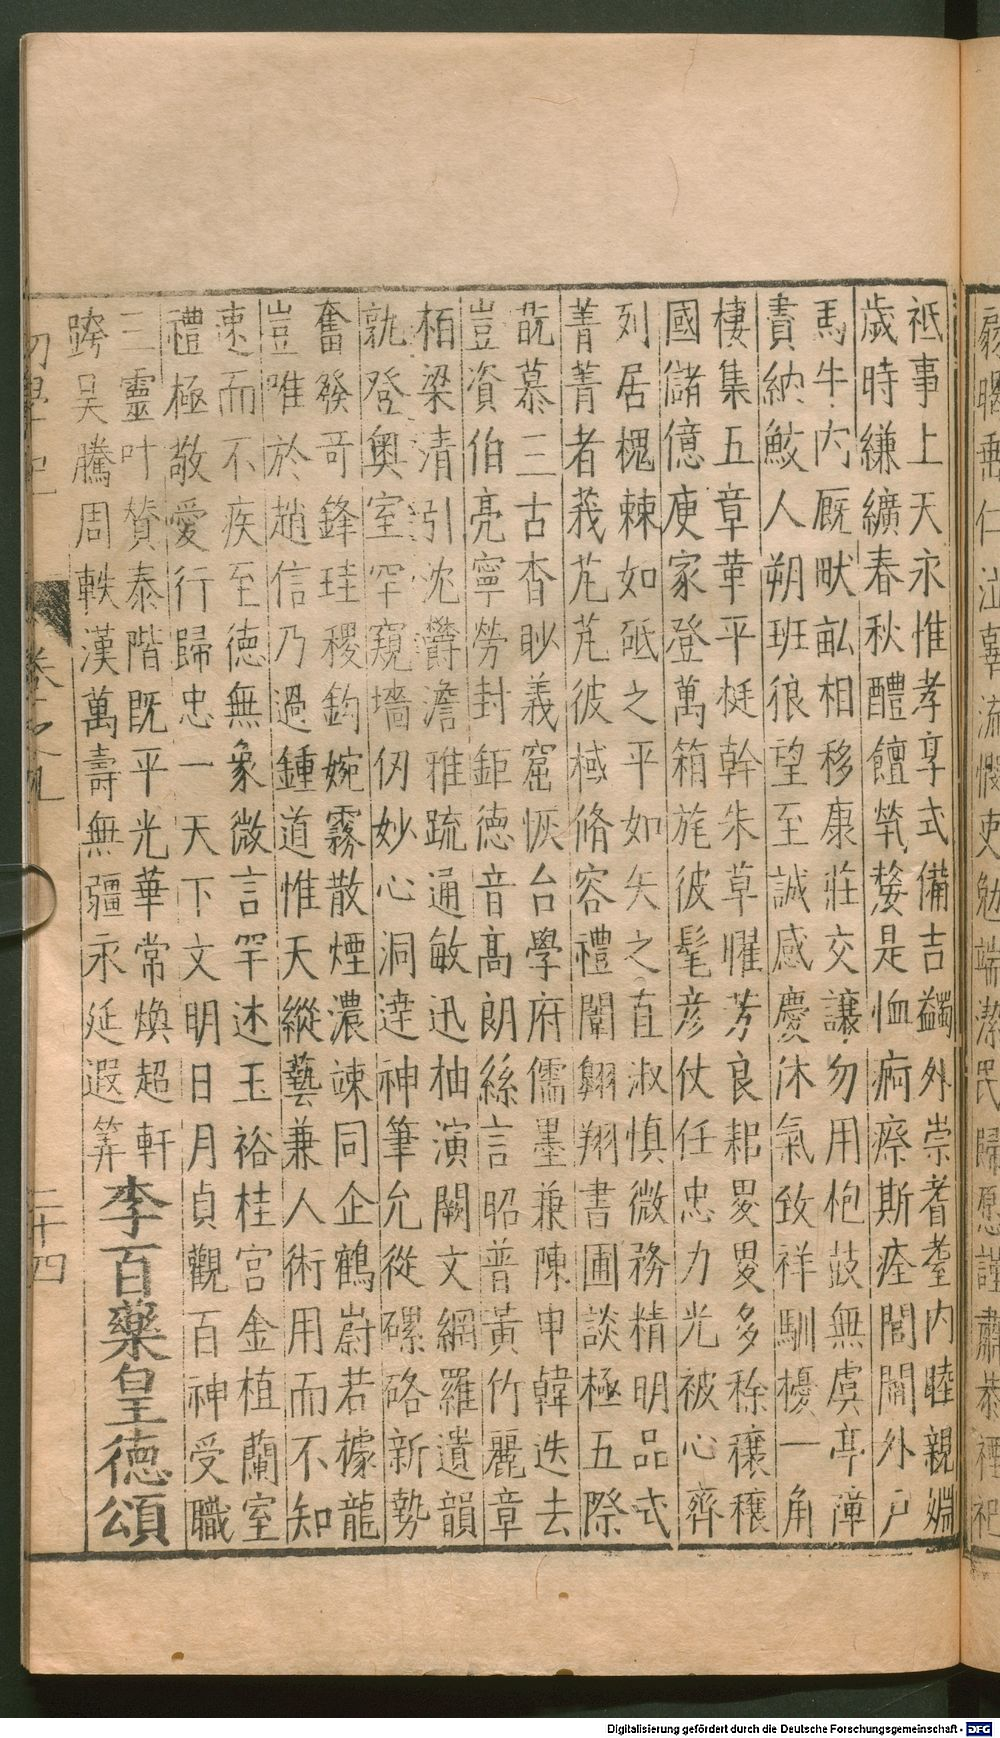 乘仁泣辜流吏勉端潔民歸愿謹肅恭禋祀
祗事上天永惟孝享式備吉蠲外崇耆耋内睦親婣
歲時縑纊春秋醴饘煢嫠是恤痾瘵斯痊閭闠外戸
馬牛内厩畎畝相移康莊交讓勿用枹鼓無虞亭鄣
賮納鮫人朔班很望至誠感慶沐氣致祥馴擾一角
棲集五章華平梃幹朱草耀芳良耜畟畟多稌穰穰
國儲億庾家登萬箱旄彼髦彦仗任忠力光被心齊
列居槐棘如砥之平如矢之直淑慎微務精明品式
菁菁者莪芃芃彼棫脩容禮闈翺翔書圃談極五際
翫慕三古杳眇義窟恢台學府儒墨兼陳申韓迭去
豈資伯亮寧勞封鉅德音髙朗絲言昭普黄竹麗章
栢梁清引沈欝澹雅疏通敏迅柚演闕文網羅遺韻
孰登奥室罕窺墻仞妙心洞達神筆允從磥硌新勢
奮發奇鋒珪稷鈞婉霧散煙濃竦同企鶴蔚若據龍
豈唯於趙信乃過鍾道惟天縱藝兼人術用而不知
速而不疾至德無象微言罕述玉裕桂宫金植蘭室
禮極敬愛行歸忠一天下文明日月貞觀百神受職
三靈叶賛泰階既平光華常煥超軒
跨吳騰周軼漢萬壽無疆永延遐筭
李百藥皇德頌
初學記 卷之九 二十四
Digitalisierung gefördert durch die Deutsche Forschungsgemeinschaft - DFG